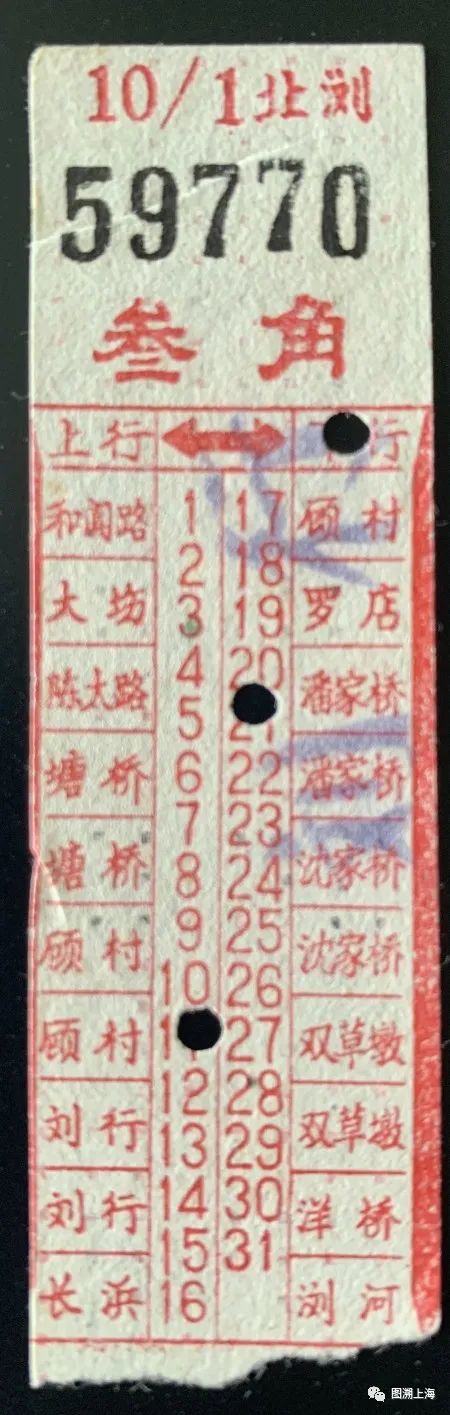 10/1北浏
59770
叁角
上行
行
和闻路
大场
陈太路
塘桥
塘桥
顾村
顾村
刘行
刘行
长浜
1 17
2 18
3 19
4 20
5
6 22
7 23
8 24
9 25
10 26
27
12 28
13 29
14 30
15 31
16
顾村
罗店
潘家桥
潘家桥
沈家桥
沈家桥
双草墩
双草墩
洋桥
浏河
图溯上海